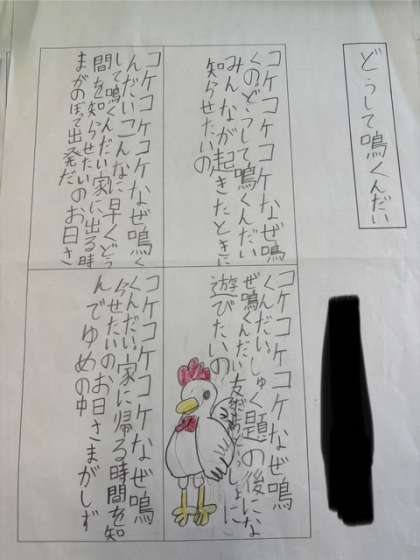 どうして鳴くんだい
コケコケコケなぜ鳴
くのどうして鳴くんだい
みんなが起きたときに
知らせたいの
コケコケコケなぜ鳴く
んだいこんなに早くどう
して鳴くんだい家に出る時
間を知らせたいのお日さ
まがのぼって出発だ
コケコケコケなぜ鳴
くんだいしゅく題の後にな
ぜ鳴くんだい友だちといっしょに
遊びたいの
コケコケコケなぜ鳴
くんだい家に帰る時間を知
らせたいのお日さまがしず
んでゆめの中